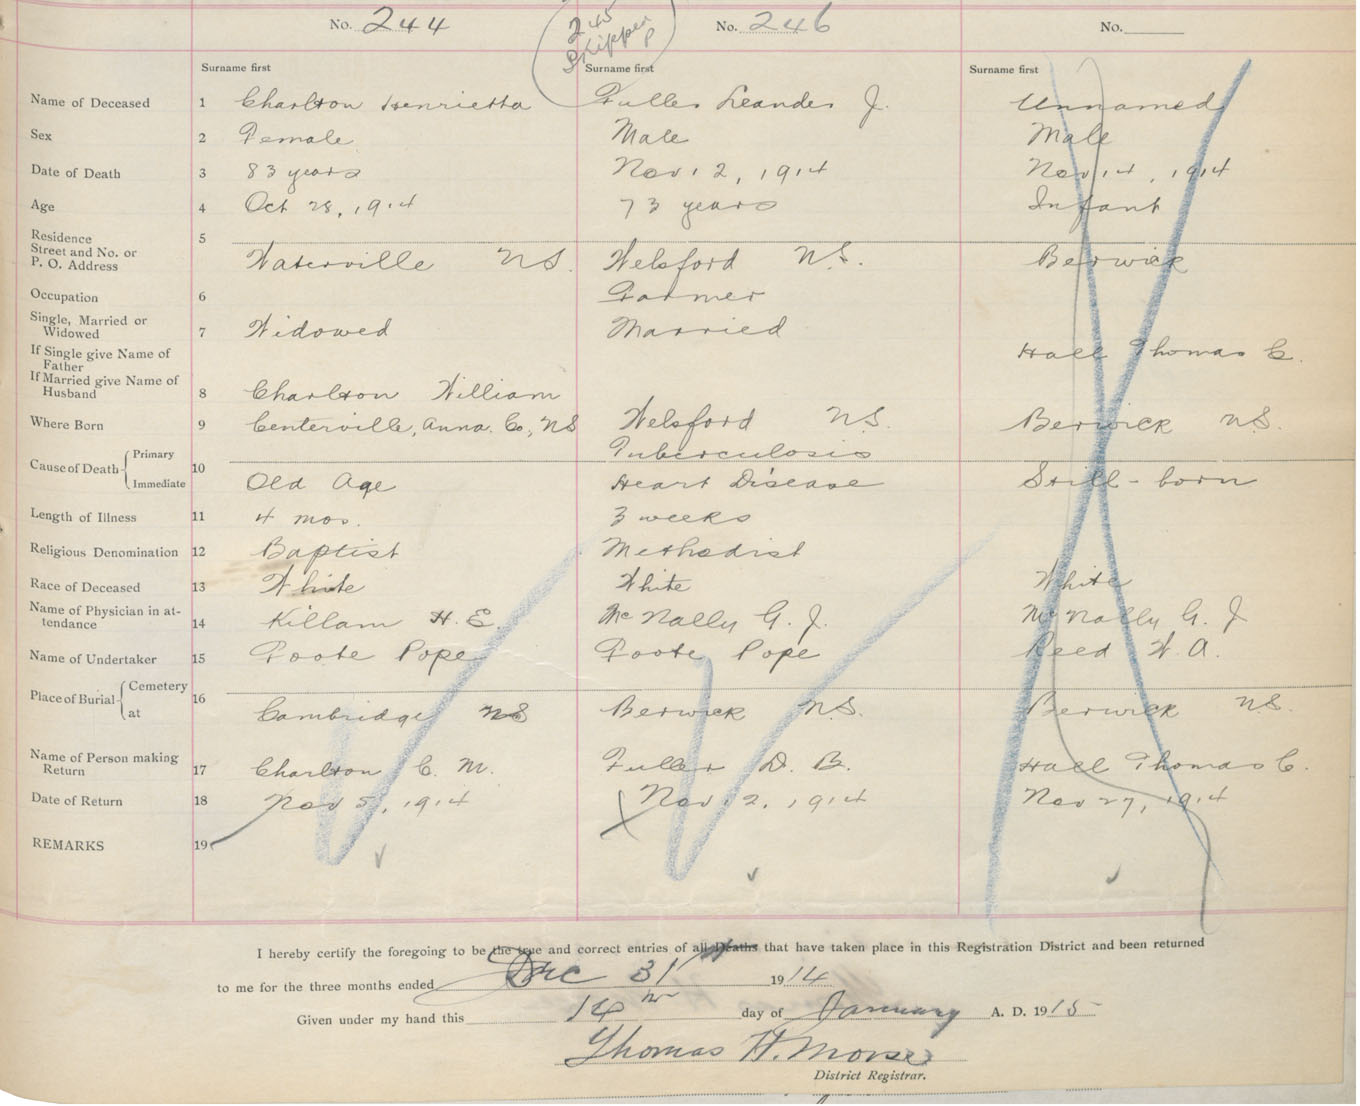 No. 244
245
Skipper
P
No. 246
No.
Surname first
Surname first
Surname first
Name of Deceased 1 Charlton Henrietta Fuller Leander J. Unnamed
Sex 2 Female Male Male
Date of Death 3 83 years Nov 12, 1914 Nov 14, 1914
Age 4 Oct 28, 1914 73 years Infant
Residence 5
Street and No. or
P. O. Address Waterville NS. Welsford NS. Berwick
Occupation 6 Farmer
Single, Married or
Widowed 7 Widowed Married
If Single give Name of
Father Hall Thomas C.
If Married give Name of
Husband 8 Charlton William
Where Born 9 Centerville, Anna. Co., NS Welsford NS. Berwick NS.
Cause of Death Primary 10 Tuberculosis
Immediate Old Age Heart Disease Still-born
Length of Illness 11 4 mos. 3 weeks
Religious Denomination 12 Baptist Methodist
Race of Deceased 13 White White White
Name of Physician in at-
tendance 14 Killam H. E. McNally G. J. McNally G. J
Name of Undertaker 15 Foote Pope Foote Pope Reed W. A.
Place of Burial Cemetery 16
at Cambridge NS Berwick NS. Berwick NS.
Name of Person making
Return 17 Charlton C. M. Fuller D. B. Hall Thomas C.
Date of Return 18 Nov 5, 1914 Nov 12, 1914 Nov 27, 1914
REMARKS 19
I hereby certify the foregoing to be the true and correct entries of all Deaths that have taken place in this Registration District and been returned
to me for the three months ended Dec 31st 1914
Given under my hand this 14th day of January A. D. 1915
Thomas H. Morse
District Registrar.